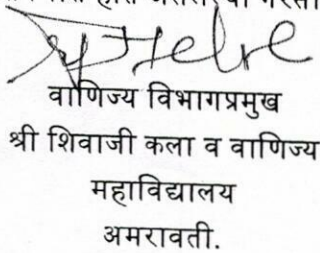 वाणिज्य विभागप्रमुख
श्री शिवाजी कला व वाणिज्य
महाविद्यालय
अमरावती.